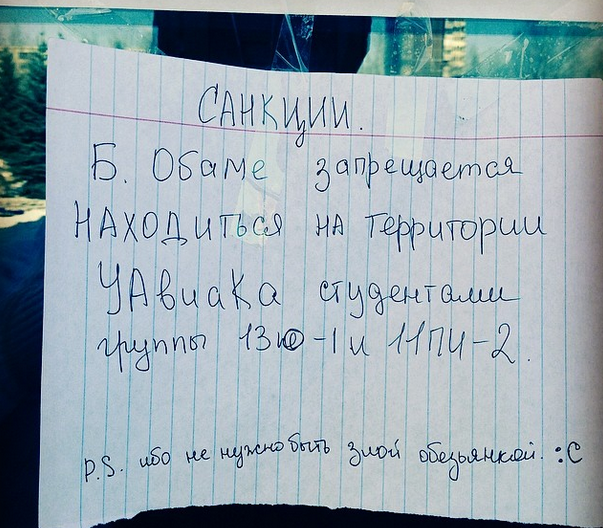 САНКЦИИ.
Б. Обаме запрещается
НАХОДИТЬСЯ НА территории
УАвиаКа студентами
группы 13 -1 и 11ПИ-2.
P.S. ибо не нужно быть злой обезьянкой. :C